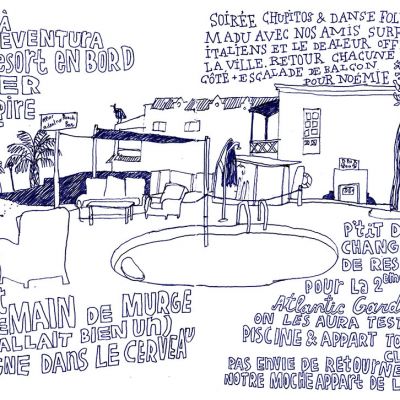 À
EVENTURA
ESORT EN BORD
ER
PIRE
SOIRÉE CHUPITOS & DANSE FOL
MADU AVEC NOS AMIS SURF
ITALIENS ET LE DEALER OFF
LA VILLE. RETOUR CHACUNE
CÔTÉ + ESCALADE DE BALCON
POUR NOÉMIE
P'TIT D
CHANG
DE RES
POUR LA 2ÈME
Atlantic Gard
ON LES AURA TEST
PISCINE & APPART TO
CL
PAS ENVIE DE RETOURNE
NOTRE MOCHE APPART DE L
T
EMAIN DE MURGE
ALLAIT BIEN UN)
GNE DANS LE CERVEAU